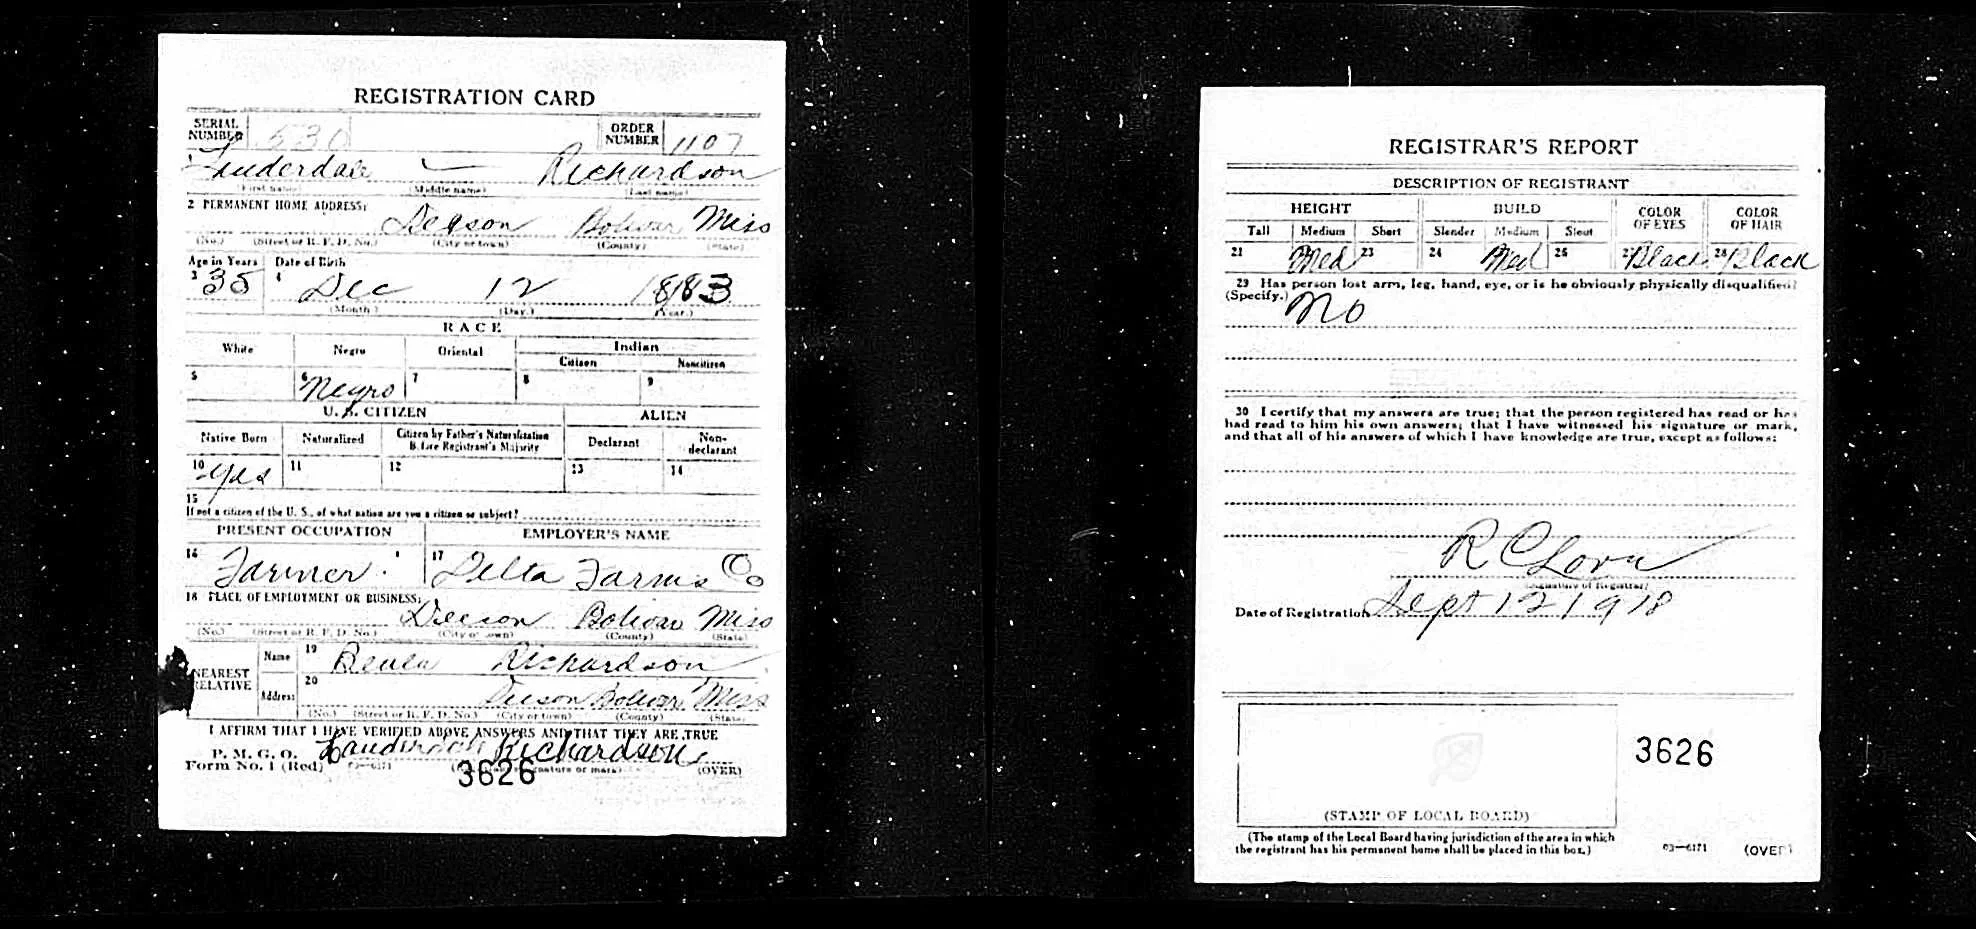 REGISTRATION CARD
SERIAL NUMBER 530 ORDER NUMBER 1107
1 Lauderdale — Richardson
(First name) (Middle name) (Last name)
2 PERMANENT HOME ADDRESS:
Deeson Bolivar Miss
(No.) (Street or R. F. D. No.) (City or town) (County) (State)
Age in Years Date of Birth
3 35 4 Dec 12 1883
(Month.) (Day.) (Year.)
RACE
White Negro Oriental Indian
Citizen Noncitizen
5 6 Negro 7 8 9
U. S. CITIZEN ALIEN
Native Born Naturalized Citizen by Father's Naturalization Before Registrant's Majority Declarant Non-declarant
10 Yes 11 12 13 14
15
If not a citizen of the U. S., of what nation are you a citizen or subject?
PRESENT OCCUPATION EMPLOYER'S NAME
16 Farmer. 17 Delta Farms Co
18 PLACE OF EMPLOYMENT OR BUSINESS:
Deeson Bolivar Miss
(No.) (Street or R. F. D. No.) (City or town) (County) (State)
NEAREST RELATIVE
Name 19 Richardson
Address 20 Deeson Bolivar Miss
(No.) (Street or R. F. D. No.) (City or town) (County) (State)
I AFFIRM THAT I HAVE VERIFIED ABOVE ANSWERS AND THAT THEY ARE TRUE
P. M. G. O.
Form No. 1 (Red) 03—6171 Lauderdale Richardson
(Registrant's signature or mark) (OVER)
3626
REGISTRAR'S REPORT
DESCRIPTION OF REGISTRANT
HEIGHT BUILD COLOR OF EYES COLOR OF HAIR
Tall Medium Short Slender Medium Stout
21 22 Med 23 24 25 Med 26 27 Black 28 Black
29 Has person lost arm, leg, hand, eye, or is he obviously physically disqualified?
(Specify.) No
30 I certify that my answers are true; that the person registered has read or has
had read to him his own answers; that I have witnessed his signature or mark,
and that all of his answers of which I have knowledge are true, except as follows:
R C
(Signature of Registrar)
Date of Registration Sept 12 1918
3626
(STAMP OF LOCAL BOARD)
(The stamp of the Local Board having jurisdiction of the area in which
the registrant has his permanent home shall be placed in this box.)
03—6171 (OVER)